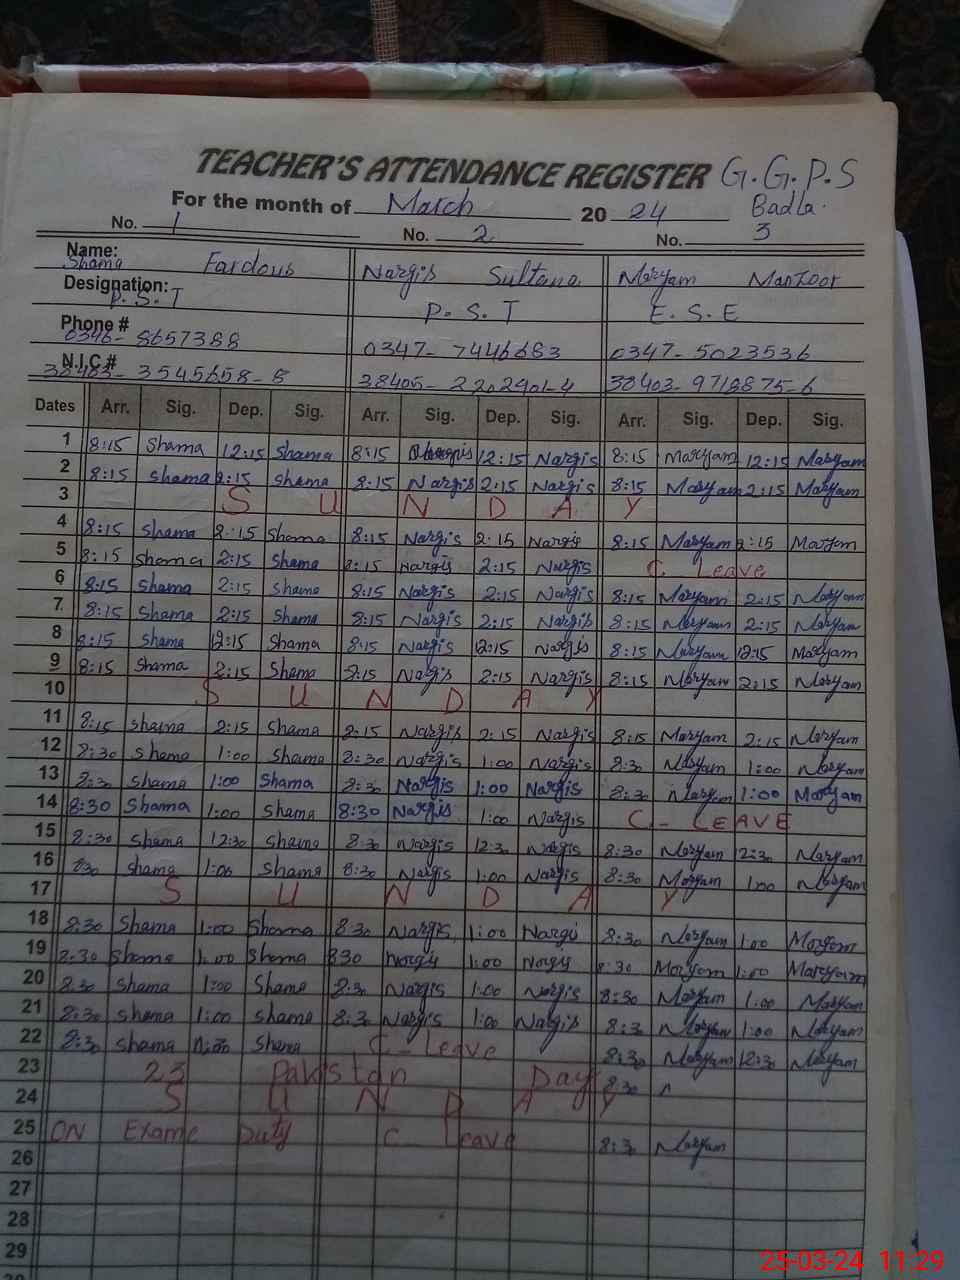 TEACHER'S ATTENDANCE REGISTER G.G.P.S
For the month of March 20 24 Badla.
No. 1 No. 2 No. 3
Name: Shama Fardous Nargis Sultana Maryam Manzoor
Designation: P.S.T P.S.T E.S.E
Phone # 0346-8657388 0347-7446683 0347-5023536
N.I.C.# 38403-3545658-8 38405-2202901-4 38403-9718875-6
Dates Arr. Sig. Dep. Sig. Arr. Sig. Dep. Sig. Arr. Sig. Dep. Sig.
1 8:15 Shama 12:15 Shama 8:15 Nargis 12:15 Nargis 8:15 Maryam 12:15 Maryam
2 8:15 Shama 2:15 Shama 8:15 Nargis 2:15 Nargis 8:15 Maryam 2:15 Maryam
3 S U N D A Y
4 8:15 Shama 2:15 Shama 8:15 Nargis 2:15 Nargis 8:15 Maryam 2:15 Maryam
5 8:15 Shama 2:15 Shama 8:15 Nargis 2:15 Nargis C. Leave
6 8:15 Shama 2:15 Shama 8:15 Nargis 2:15 Nargis 8:15 Maryam 2:15 Maryam
7 8:15 Shama 2:15 Shama 8:15 Nargis 2:15 Nargis 8:15 Maryam 2:15 Maryam
8 8:15 Shama 12:15 Shama 8:15 Nargis 12:15 Nargis 8:15 Maryam 12:15 Maryam
9 8:15 Shama 2:15 Shama 8:15 Nargis 2:15 Nargis 8:15 Maryam 2:15 Maryam
10 S U N D A Y
11 8:15 Shama 2:15 Shama 2:15 Nargis 2:15 Nargis 8:15 Maryam 2:15 Maryam
12 8:30 Shama 1:00 Shama 8:30 Nargis 1:00 Nargis 8:30 Maryam 1:00 Maryam
13 8:30 Shama 1:00 Shama 8:30 Nargis 1:00 Nargis 8:30 Maryam 1:00 Maryam
14 8:30 Shama 1:00 Shama 8:30 Nargis 1:00 Nargis C- LEAVE
15 8:30 Shama 12:30 Shama 8:30 Nargis 12:30 Nargis 8:30 Maryam 12:30 Maryam
16 8:30 Shama 1:00 Shama 8:30 Nargis 1:00 Nargis 8:30 Maryam 1:00 Maryam
17 S U N D A Y
18 8:30 Shama 1:00 Shama 8:30 Nargis 1:00 Nargis 8:30 Maryam 1:00 Maryam
19 8:30 Shama 1:00 Shama 830 Nargis 1:00 Nargis 8:30 Maryam 1:00 Maryam
20 8:30 Shama 1:00 Shama 8:30 Nargis 1:00 Nargis 8:30 Maryam 1:00 Maryam
21 8:30 Shama 1:00 Shama 8:30 Nargis 1:00 Nargis 8:30 Maryam 1:00 Maryam
22 8:30 Shama Shama C- Leave 8:30 Maryam 12:30 Maryam
23 23 Pakistan Day 8:30
24 S U N D A Y
25 ON Exame Duty C- Leave 8:30 Maryam
26
27
28
29
25-03-24 11:29